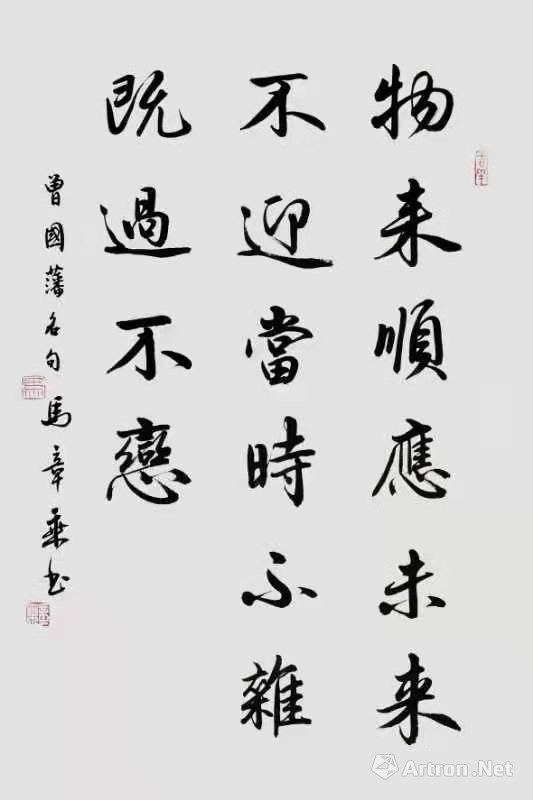 物来順應未来
不迎當時不雜
既過不戀
曾國藩名句 馬章乘书
Artron.Net